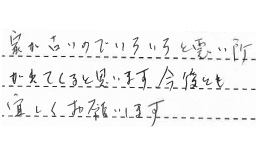 家が古いのでいろいろと悪い所
が出てくると思います今後とも
宜しくお願いします